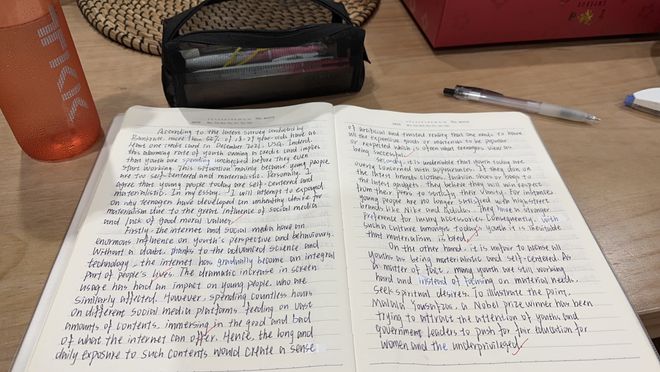 According to the latest survey conducted by
Bankrate, more than 60% of 18-29 year-olds have at
least one credit card in December 2021, USA. Indeed,
this alarming rate of youth owning a credit card implies
that youth are spending unchecked before they even
start working. This situation mainly because young people
are too self-centered and materialistic. Personally, I
agree that young people today are self-centered and
materialistic. In my essay, I will attempt to expound
on why teenagers have developed an unhealthy desire for
materialism due to the great influence of social media
and lack of good moral values.
Firstly, the internet and social media have an
enormous influence on youth's perspective and behaviours.
Without a doubt, thanks to the advanced science and
technology, the internet has gradually become an integral
part of people's lives. The dramatic increase in screen
usage has had an impact on young people, who are
similarly affected. However, spending countless hours
on different social media platforms, feeding on vast
amounts of contents, immersing in the good and bad
of what the internet can offer. Hence, the long and
daily exposure to such contents would create a sense
of artificial and twisted reality that one needs to have
all the expensive goods or materials to be popular
or respected which is often what teenagers view as
being successful.
Secondly, it is undeniable that youth today are
overly concerned with appearances. If they don on
the latest brands clothes, fashion shoes or bags to
the latest gadgets. They believe they will win respect
from their peers to satisfy their vanity. For instance,
young people are no longer satisfied with high-street
brands like Nike and Adidas. They have a stronger
preference for luxury accessories. Consequently, with
such culture amongst today's youth, it is inevitable
that materialism is
On the other hand, it is unfair to accuse all
youths as being materialistic and self-centered. As
a matter of fact, many youth are still working
hard and instead of focusing on material needs,
seek spiritual desires. To illustrate the point,
Malala Yousafzai, a Nobel prize winner has been
trying to attract the attention of youths and
government leaders to push for fair education for
women and the underprivileged.